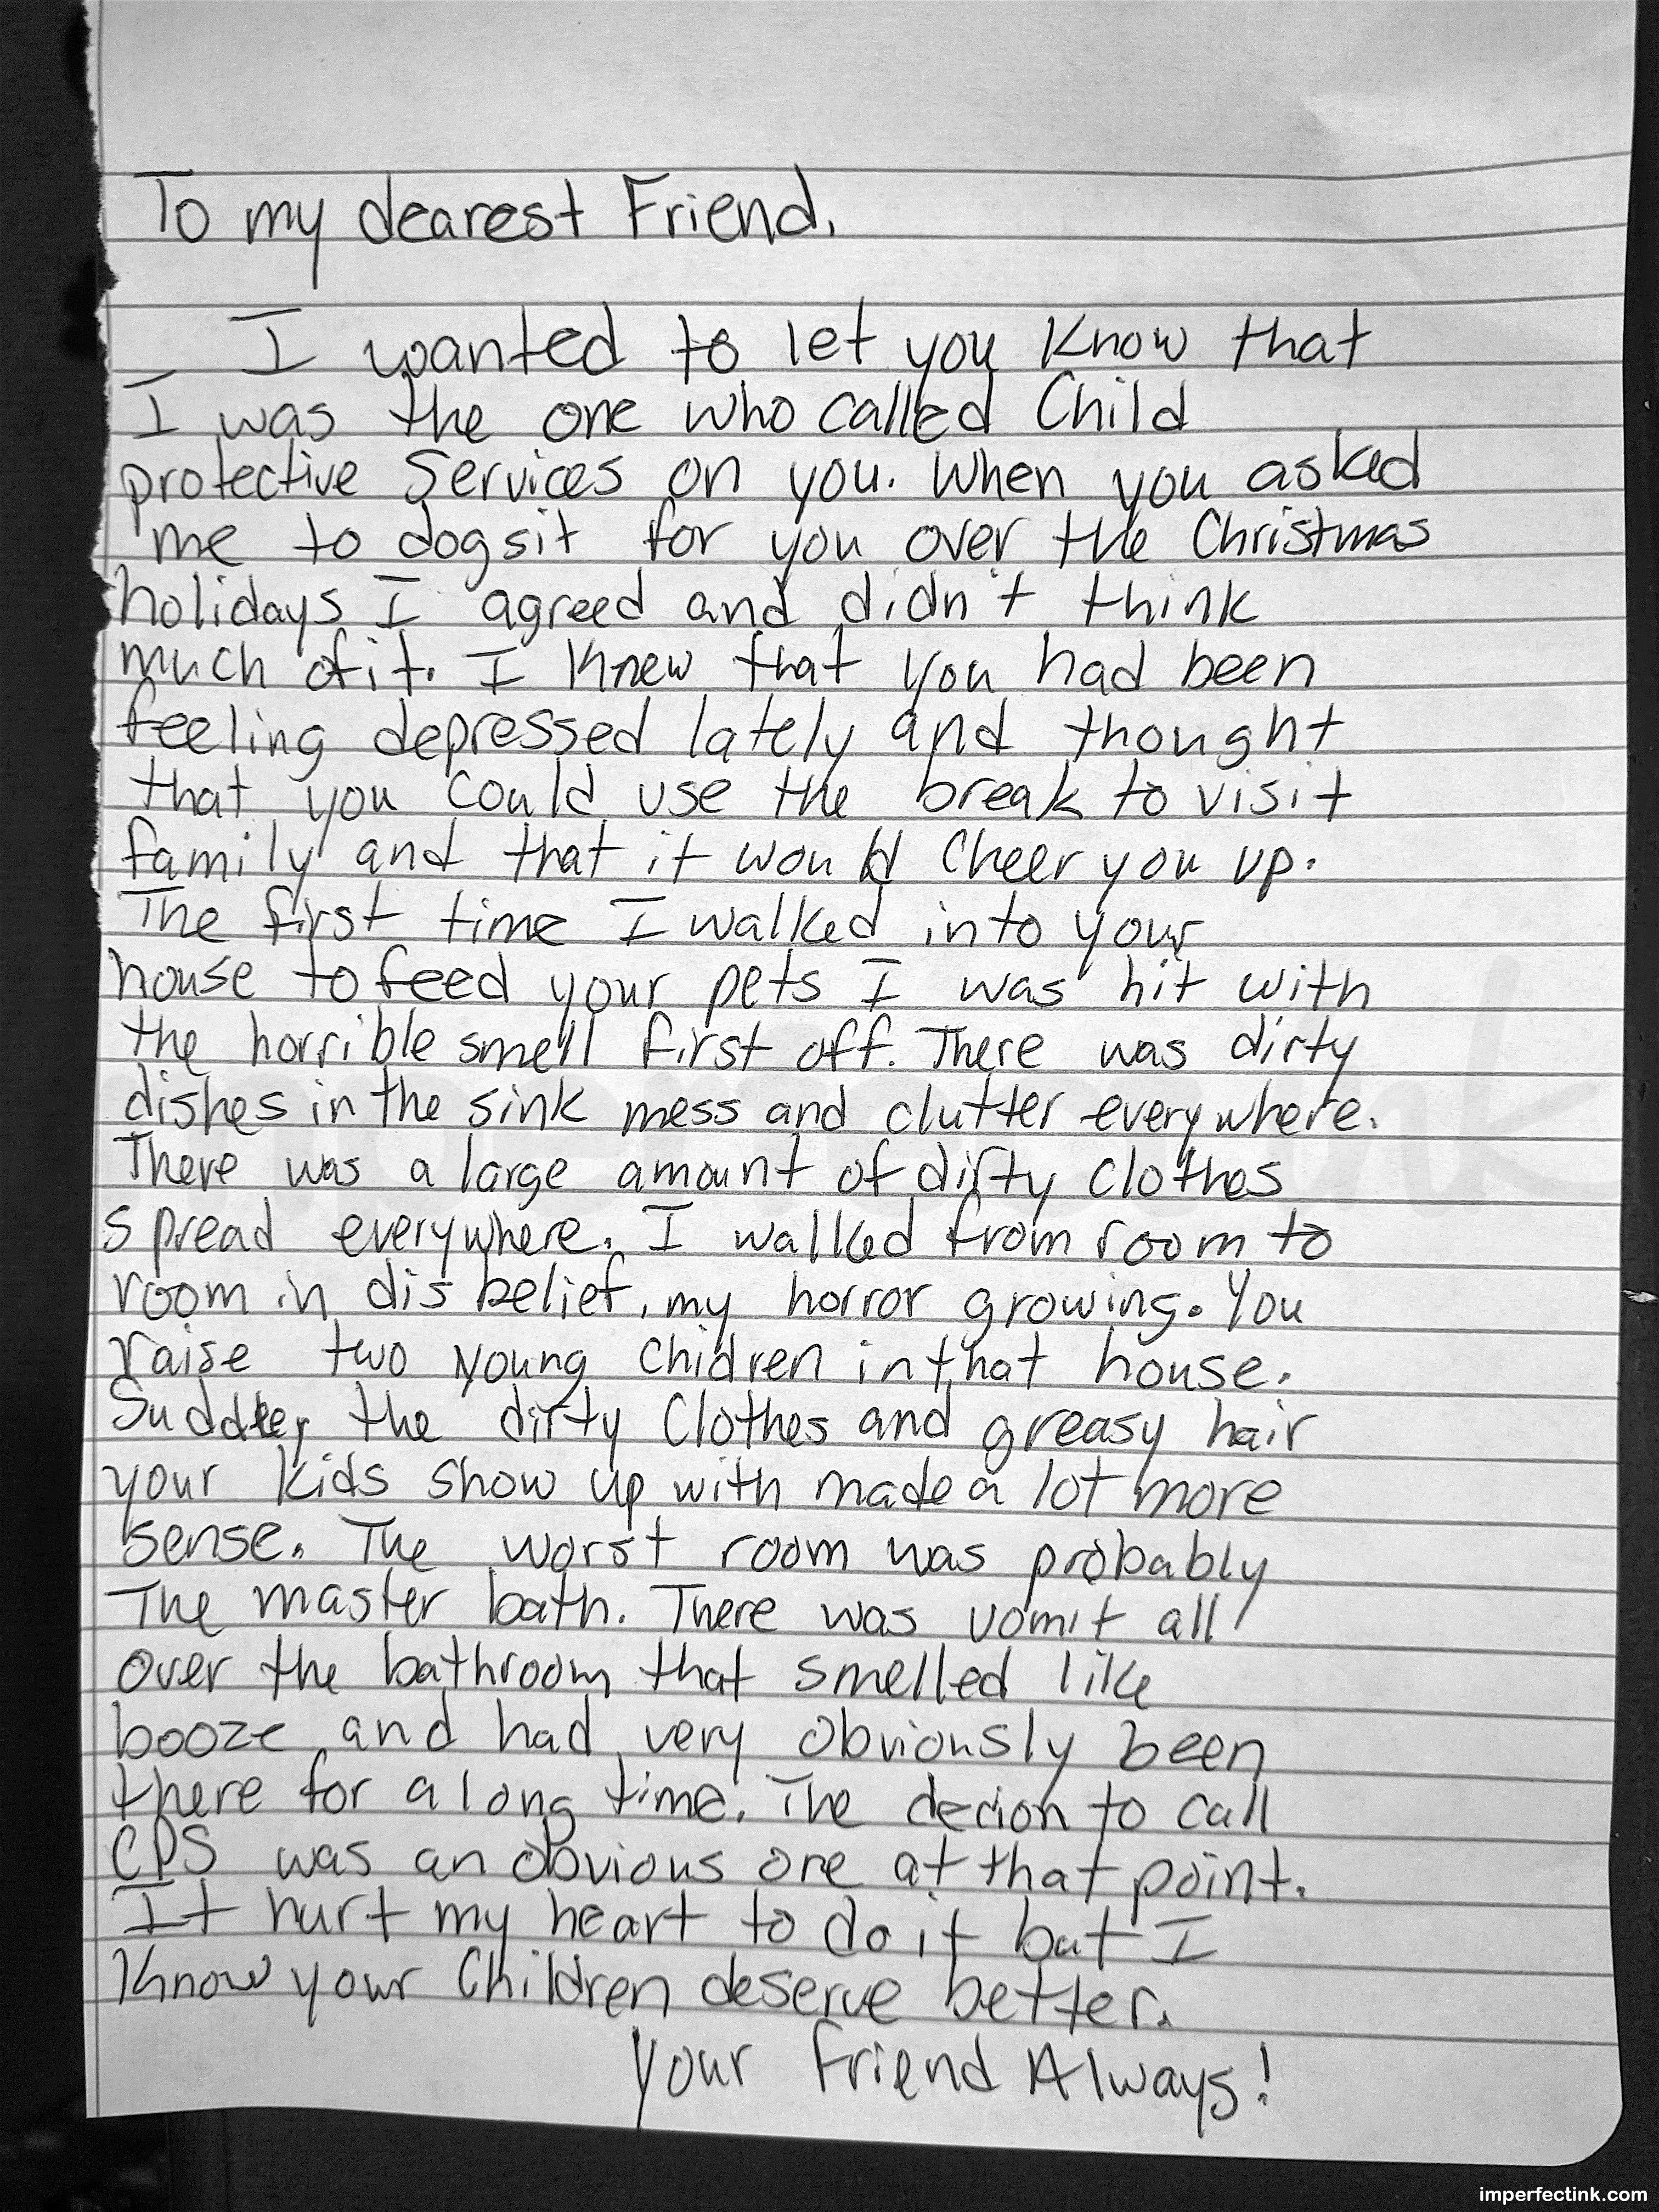 To my dearest Friend,
I wanted to let you know that
I was the one who called Child
protective Services on you. When you asked
me to dogsit for you over the Christmas
holidays I agreed and didn't think
much of it. I knew that you had been
feeling depressed lately and thought
that you could use the break to visit
family and that it would cheer you up.
The first time I walked into your
house to feed your pets I was hit with
the horrible smell first off. There was dirty
dishes in the sink mess and clutter everywhere.
There was a large amount of dirty clothes
spread everywhere. I walked from room to
room in disbelief, my horror growing. You
raise two young chidren in that house.
the dirty clothes and greasy hair
your kids show up with made a lot more
sense. The worst room was probably
The master bath. There was vomit all
over the bathroom that smelled like
booze and had very obviously been
there for a long time. The decion to call
CPS was an obvious one at that point.
It hurt my heart to do it but I
Know your Children deserve better.
Your friend Always!
imperfectink.com